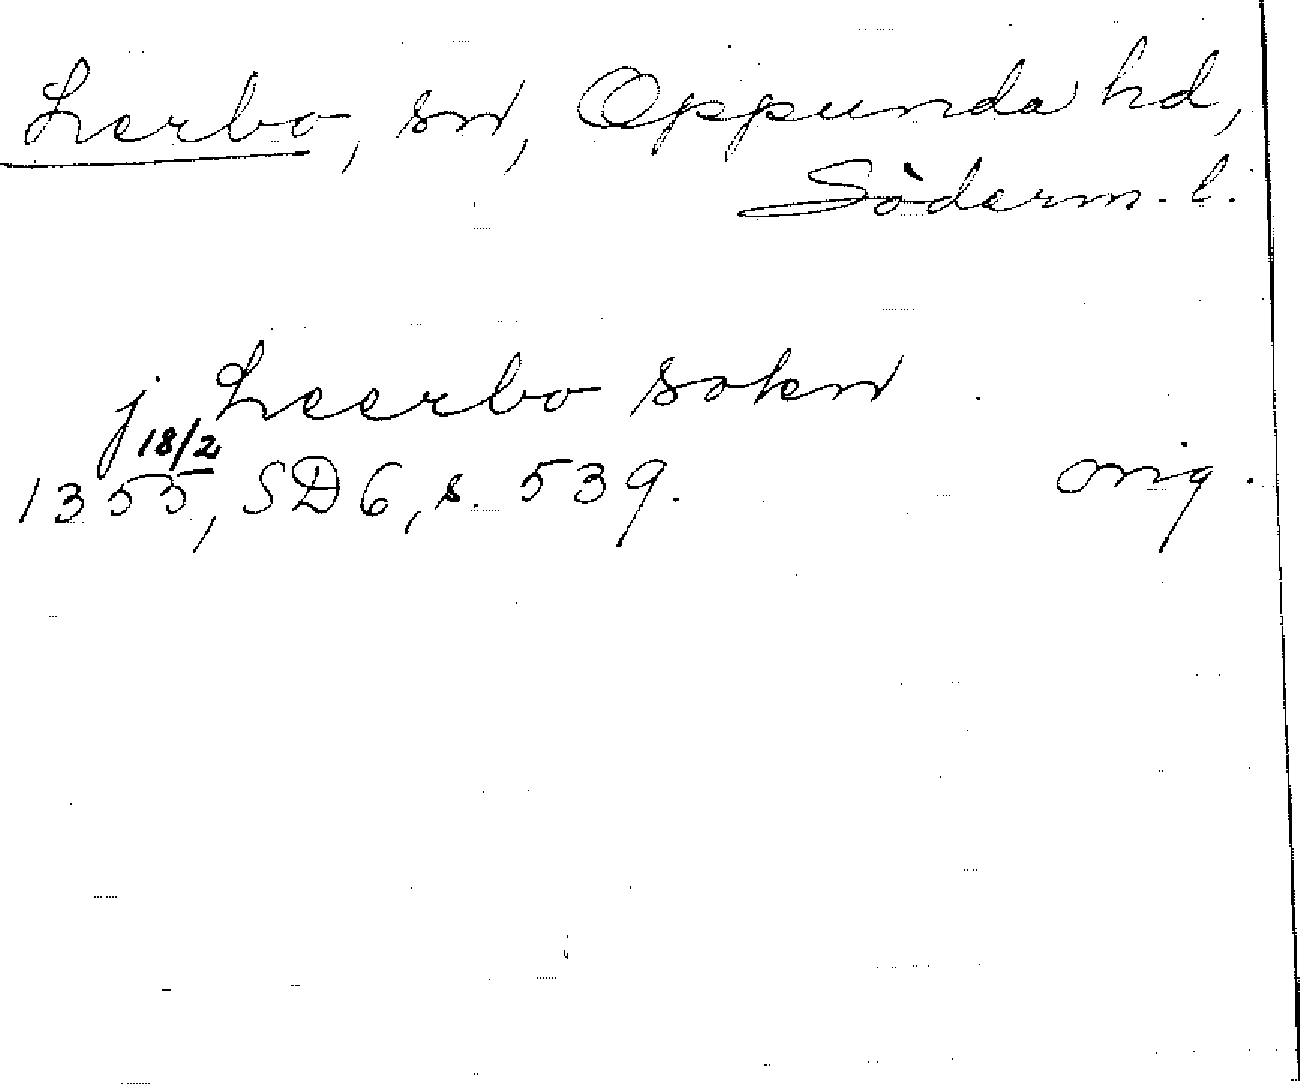 Lerbo, sn, Oppunda hd,
Söderm. l.
j Leerbo sokn
18/2
1355, SD 6, s. 539. orig.